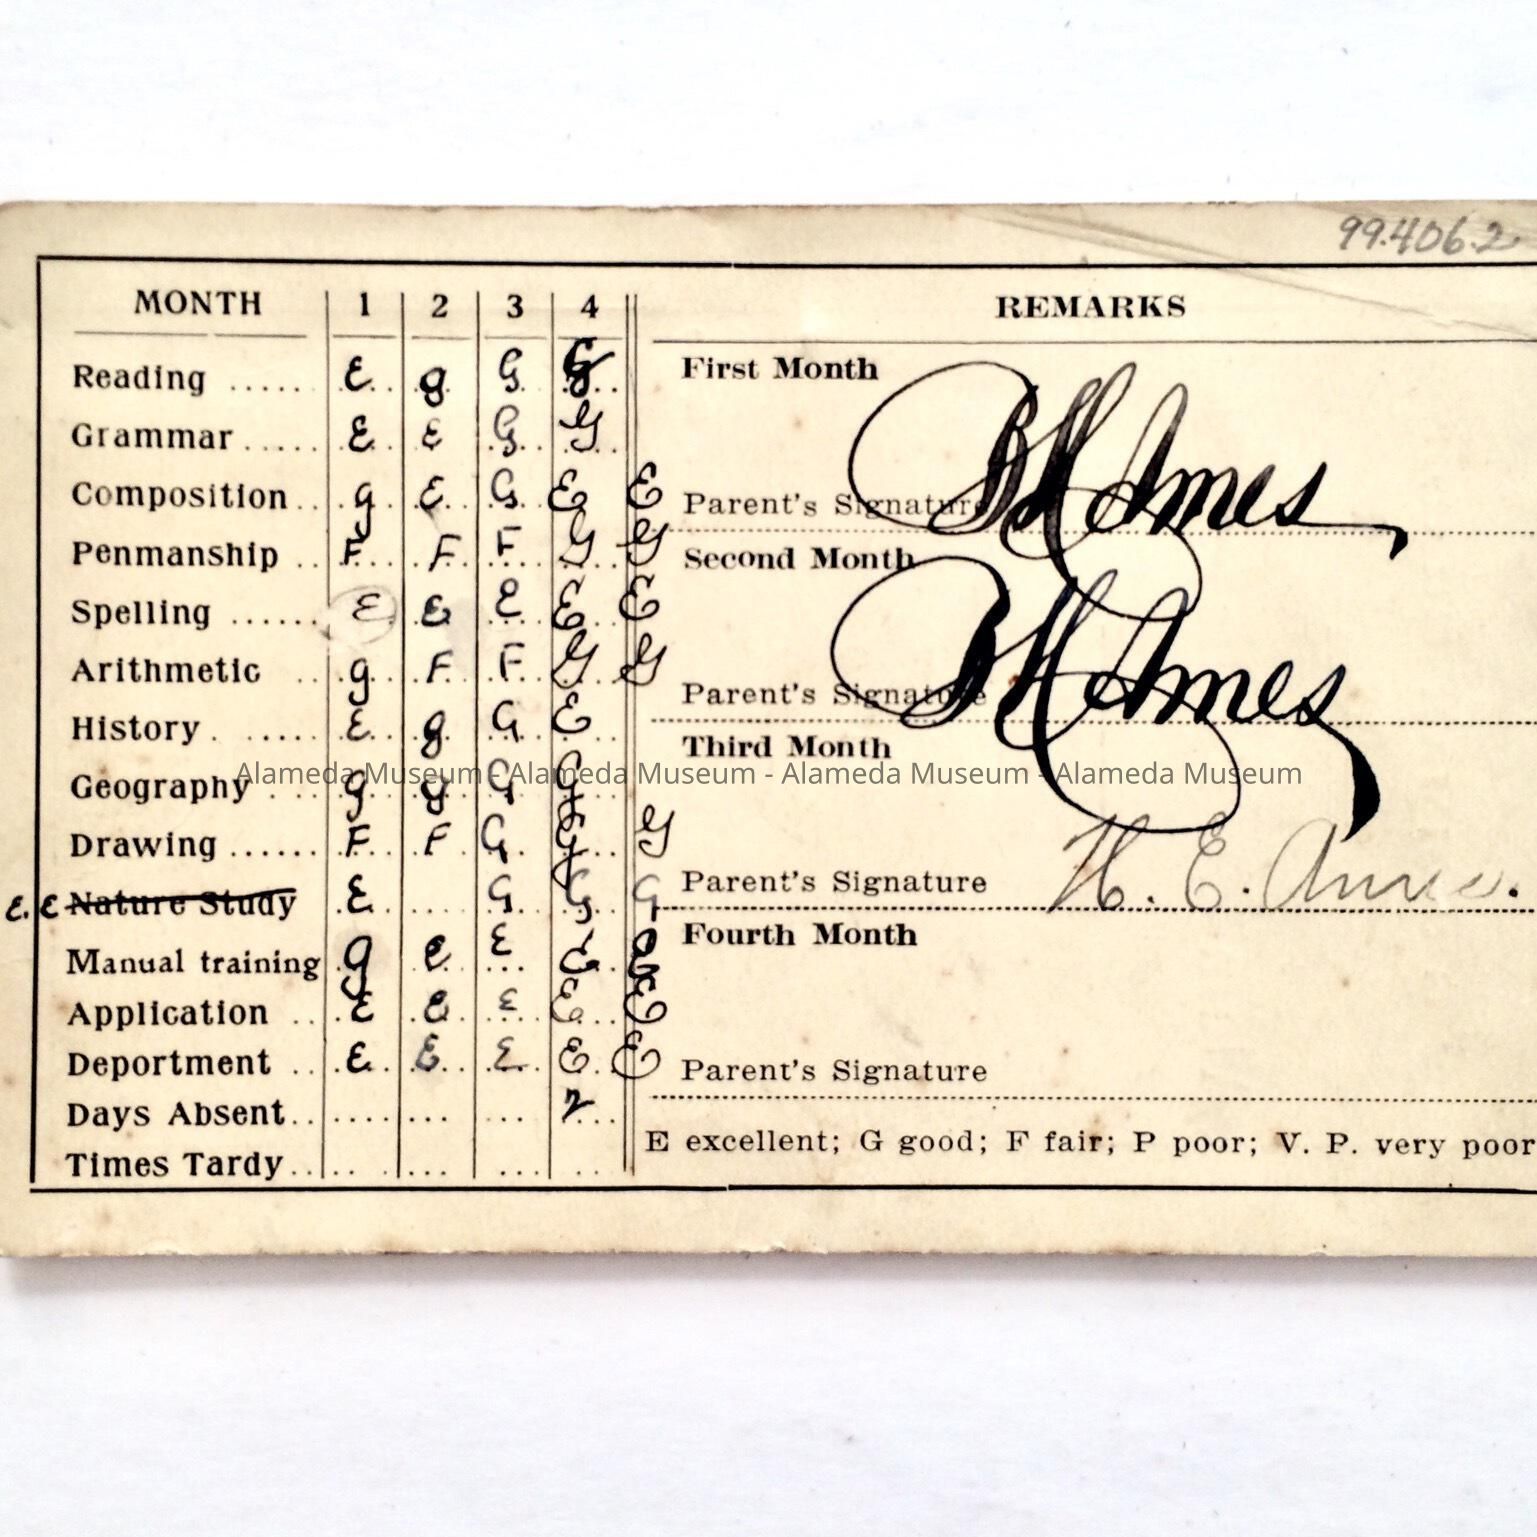 99.406.2
MONTH 1 2 3 4 REMARKS
Reading ..... E g G G
First Month
Grammar ..... E E G G
Composition .. g E G E E
Parent's Signature B H Ames
Penmanship .. F F F G G
Second Month
Spelling ...... E E E E E
Arithmetic .. g F F G G
Parent's Signature B H Ames
History . ..... E g G E
Third Month
Alameda Museum - Alameda Museum - Alameda Museum - Alameda Museum
Geography . .. g g G G
Drawing ...... F F G G G
Parent's Signature H. E. Ames.
E. E Nature Study E G G G
Fourth Month
Manual training g E E E
Application .. E E E E E
Deportment .. E E E E E
Parent's Signature
Days Absent .. 2
E excellent; G good; F fair; P poor; V. P. very poor
Times Tardy ..